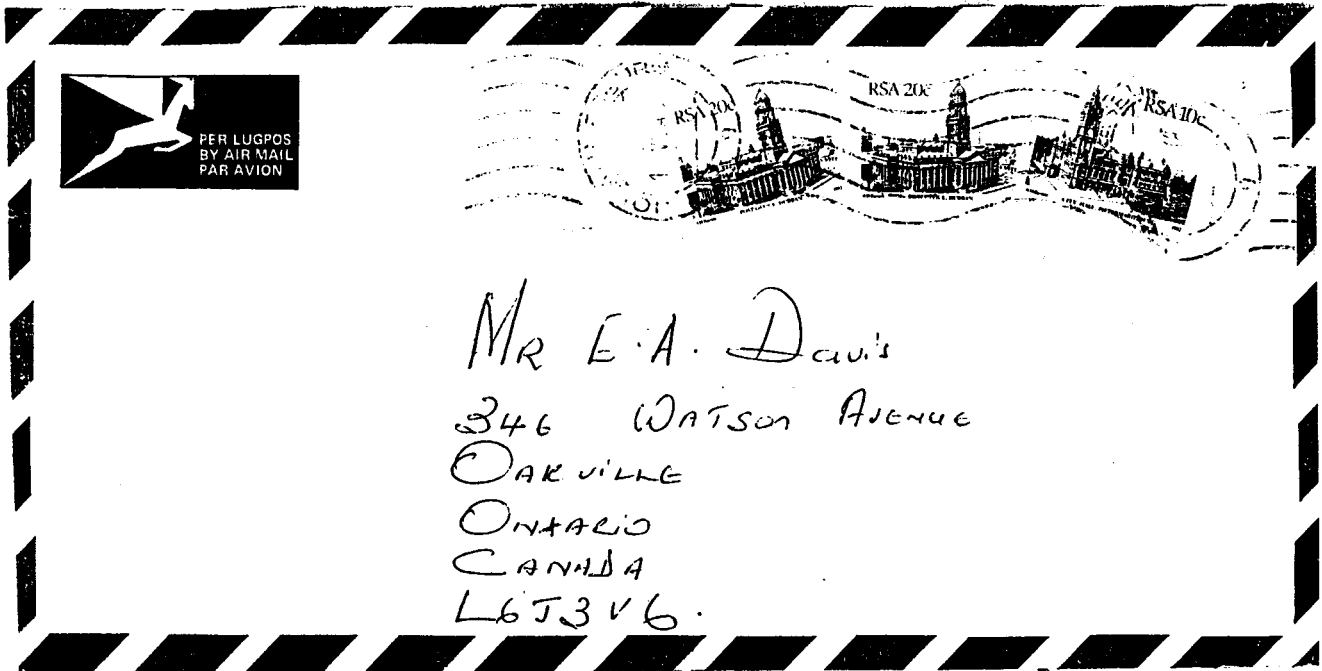 PER LUGPOS
BY AIR MAIL
PAR AVION
RSA 20c
RSA 20c
RSA 10c
MR E.A. Davis
346 WATSON AVENUE
OAKVILLE
ONTARIO
CANADA
L6J3V6.